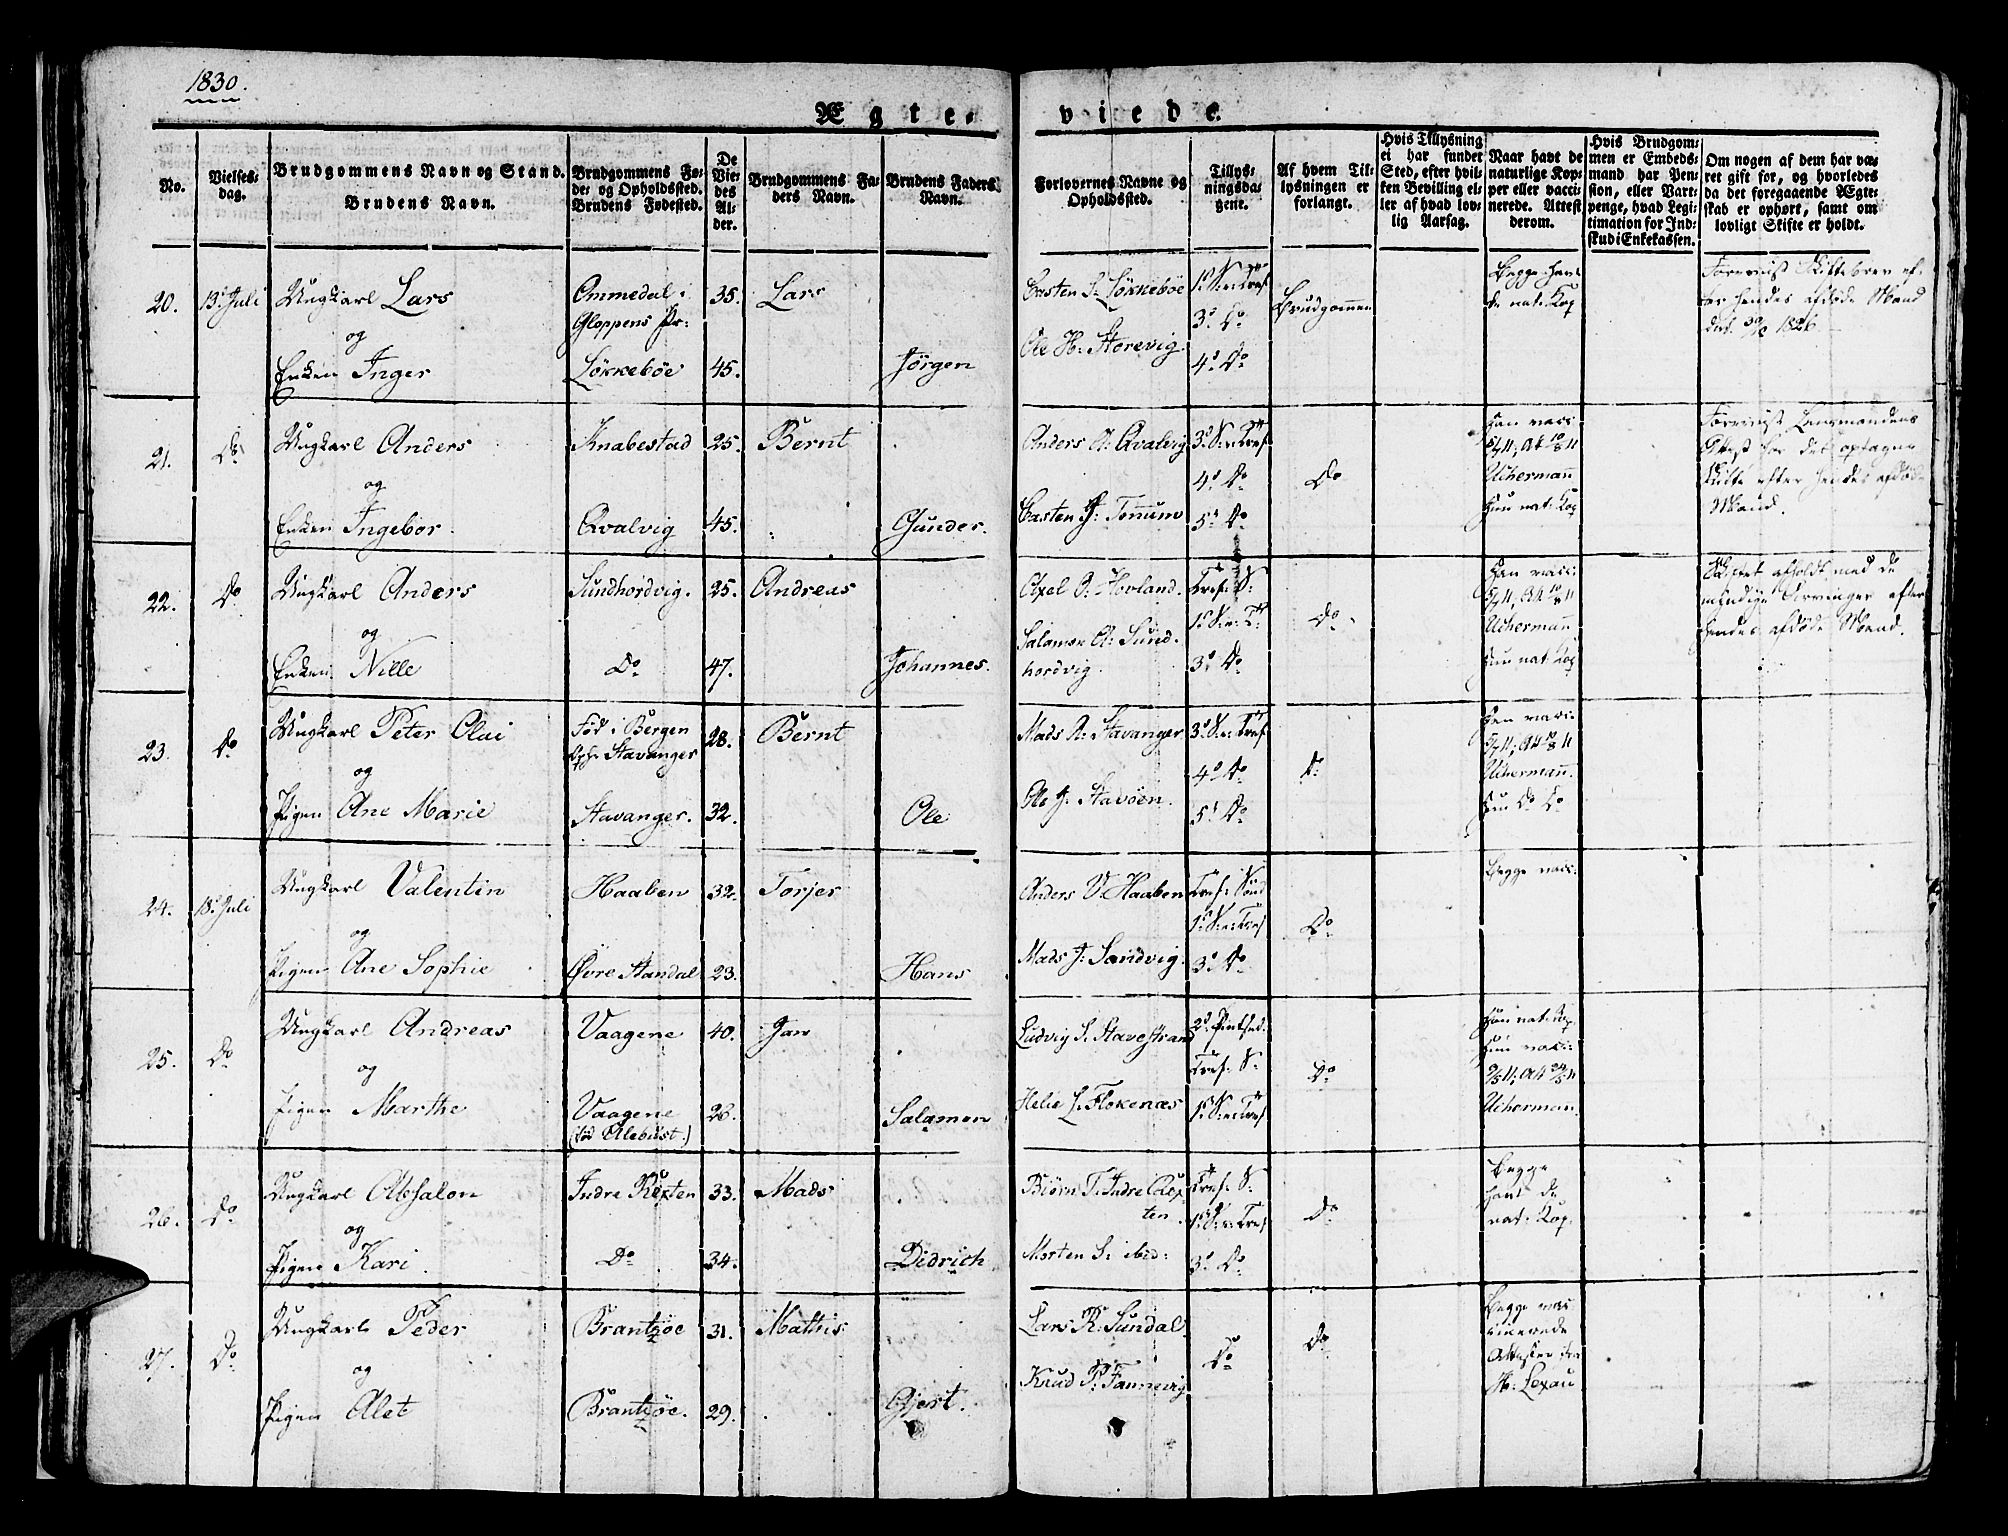 1830.
Ægte- viede.
No.
Vielses-
dag.
Brudgommens Navn og Stand.
Brudens Navn.
Brudgommens Fø-
de- og Opholdssted.
Brudens Fødested.
De
Vie-
des
Al-
der.
Brudgommens Fa-
ders Navn.
Brudens Faders
Navn.
Forlovernes Navne og
Opholdssted.
Tillys-
ningsda-
gene.
Af hvem Til-
lysningen er
forlangt.
Hvis Tillysning
ei har fundet
Sted, efter hvil-
ken Bevilling el-
ler af hvad lov-
lig Aarsag.
Naar havt de
naturlige Kop-
per eller vacci-
nerede. Attest
derom.
Hvis Brudgom-
men er Embeds-
mand har Pen-
sion, eller Vart-
penge, hvad Legi-
timation for Ind-
skud i Enkekassen.
Om nogen af dem har væ-
ret gift for, og hvorledes
da det foregaaende Ægte-
skab er ophørt, samt om
lovligt Skifte er holdt.
20. 13 Juli Ungkarl Lars
og
Enken Inger
Ommedal i
Gloppens Pr:
Løkkebøe
35.
45.
Lars
Jörgen
Casten S. Løkkebøe
Ole H: Storevig
3d: Do
4d: Do
Brudgommen
Begge hav-
de nat: Kop
Foreviist Skiftebrev ef-
ter hendes afdøde Mand
1826.
21. Do Ungkarl Anders
og
Enken Ingebor.
Knabestad
Qvalvig
25.
45.
Bernt
Gunder.
Anders A: Qvalvig
Casten J: Tonnum
3d S: e: Tref
4d: Do
5d: Do
Do
Han vacc:
Uchermann
Hun nat: Kop
Foreviist Lensmandens
Attest for det optagne
Skifte efter hendes afdøde
Mand.
22. Do Ungkarl Anders
og
Enken Nille
Sundhordvig.
Do
25.
47.
Andreas
Johannes.
Axel O: Hovland.
Salamon A: Sund-
hordvig.
Tref: S:
1d S: e: T:
3d: Do
Do
Han vacc:
Uchermann
Hun nat: Kop
Skiftet afholdt med de
myndige Arvinger efter
hendes afdøde Mand.
23. Do Ungkarl Peter Olai
og
Pigen Ane Marie
Fød i Bergen
Oph: Stavanger
Stavanger.
28.
32.
Bernt
Ole
Mads R: Stavanger
Ole J: Stavøen.
3d S: e: Tref
4d Do
5d: Do
Do
Han vacc:
Uchermann.
Hun Do Do
24. 18 Juli Ungkarl Valentin
og
Pigen Ane Sophie
Haaben
Øvre Standal
32.
23.
Torjer
Hans
Anders V: Haaben
Mads J: Sandvig.
Tref: Sønd
1d S: e: Tref
3d: Do
Do
Begge vacc:
25. Do Ungkarl Andreas
og
Pigen Marthe
Vaagene
Vaagene
(fød Alebust.)
40.
26.
Jan
Salamon
Ludvig S. Stavestrand
Helie L: Flokenæs
2d Pintsed.
Tref: S:
1d S: e: Tref
Do
Han nat: Kop.
Hun vacc:
Uchermann.
26. Do Ungkarl Absalon
og
Pigen Kari.
Indre Rexten
Do
33.
34.
Mads
Didrich
Biørn T. Indre Rex-
ten
Morten S: ibid:
Tref: S:
1d S: e: Tref
3d: Do
Do
Begge
havt de
nat: Kop.
27. Do Ungkarl Peder
og
Pigen Alet
Brantzøe
Brantzøe.
31.
29.
Mathis
Gjert.
Lars R: Sundal.
Knud P: Fannevig
Do
Do
Begge vac-
cinerede
Attester fra
Hr: Lexau